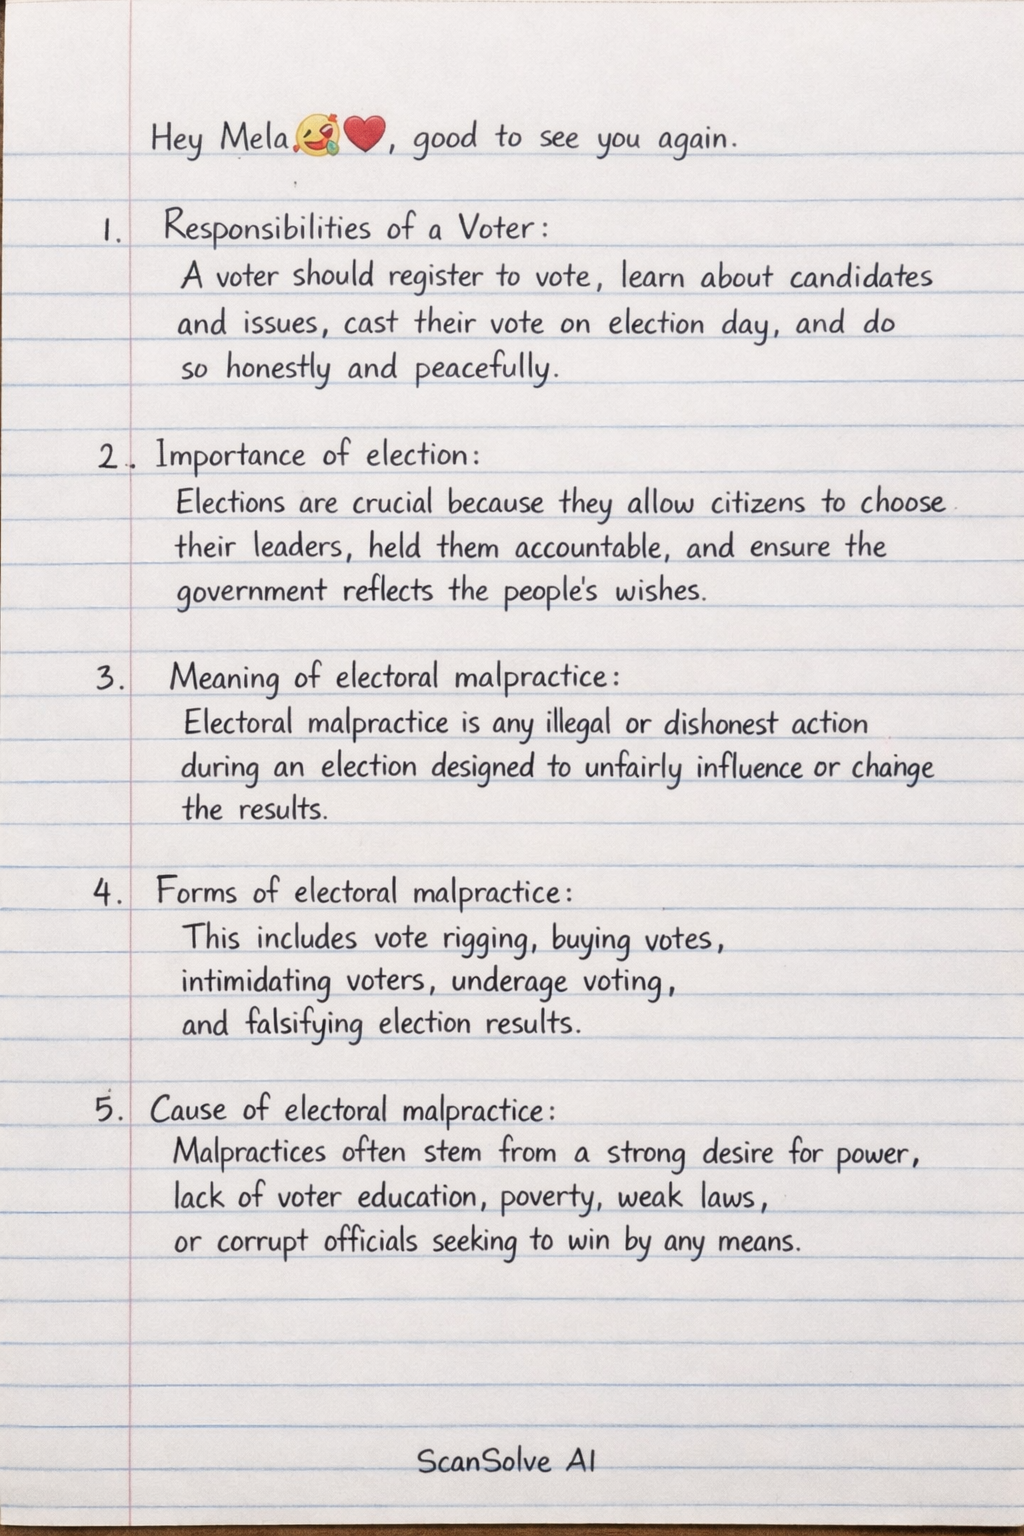 Hey Mela🥰❤️, good to see you again.
1. Responsibilities of a Voter:
A voter should register to vote, learn about candidates
and issues, cast their vote on election day, and do
so honestly and peacefully.
2. Importance of election:
Elections are crucial because they allow citizens to choose
their leaders, held them accountable, and ensure the
government reflects the people's wishes.
3. Meaning of electoral malpractice:
Electoral malpractice is any illegal or dishonest action
during an election designed to unfairly influence or change
the results.
4. Forms of electoral malpractice:
This includes vote rigging, buying votes,
intimidating voters, underage voting,
and falsifying election results.
5. Cause of electoral malpractice:
Malpractices often stem from a strong desire for power,
lack of voter education, poverty, weak laws,
or corrupt officials seeking to win by any means.
ScanSolve AI